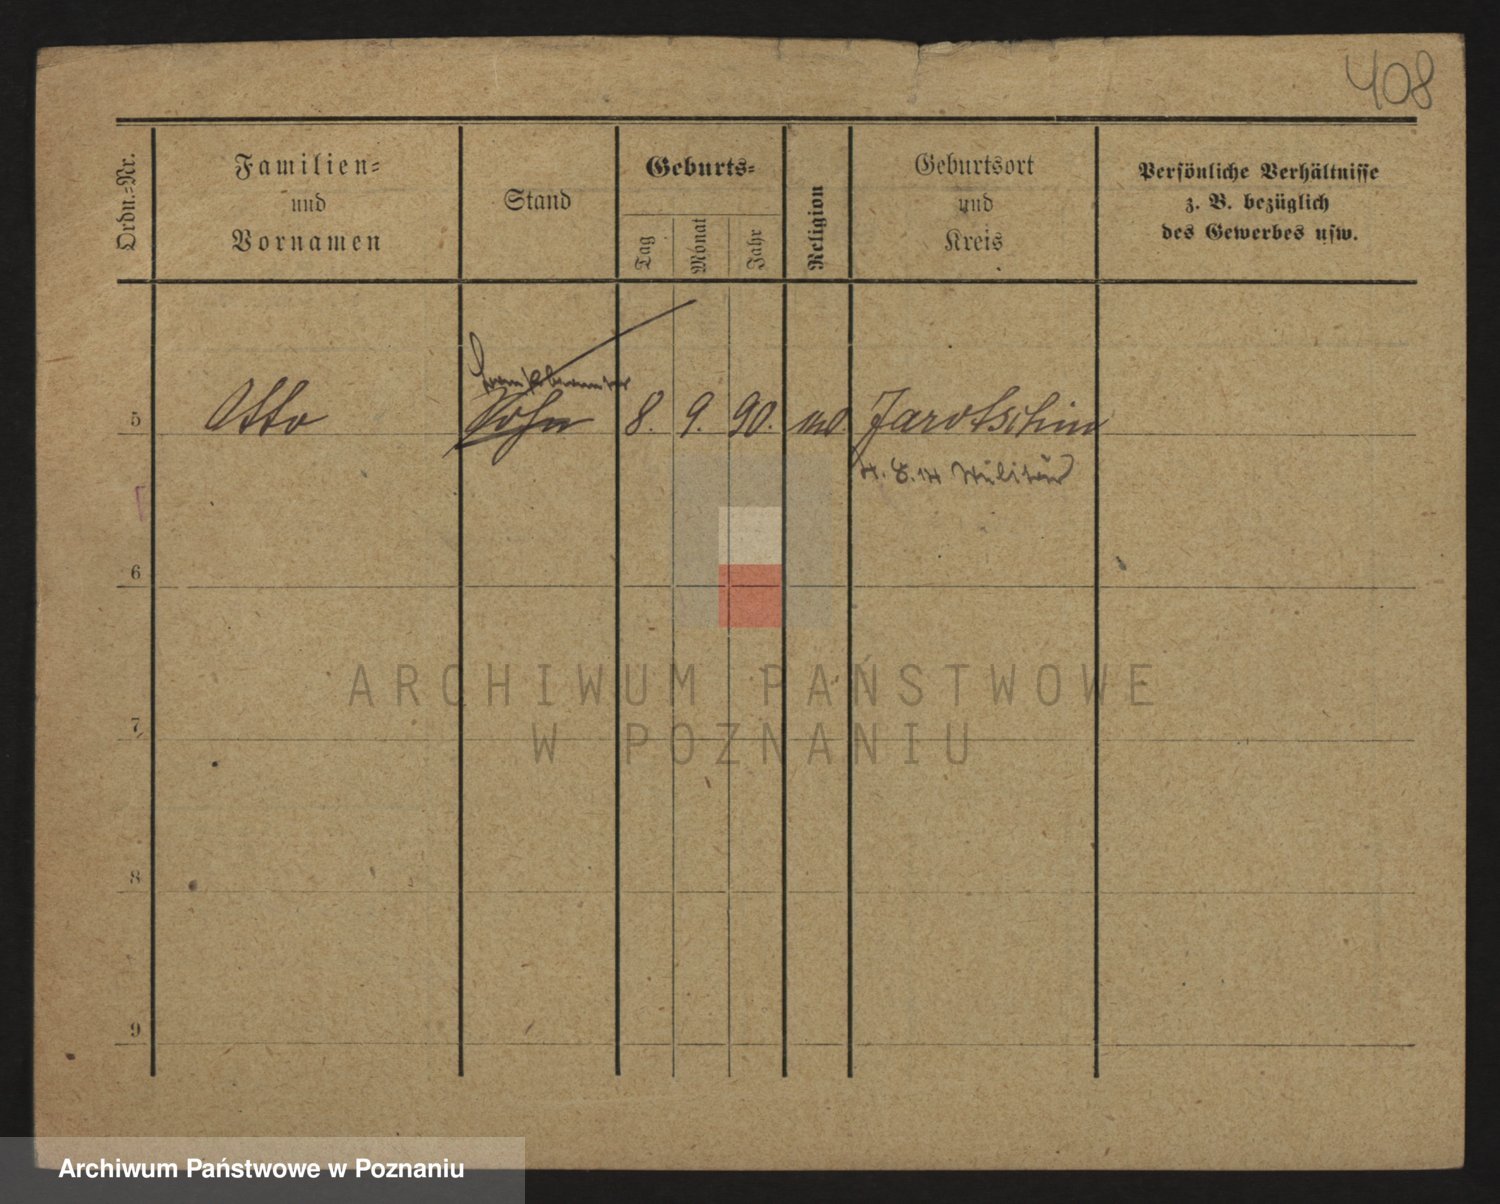 408
Ordn.-Nr.
Familien-
und
Vornamen
Stand
Geburts-
Tag
Monat
Jahr
Religion
Geburtsort
und
Kreis
Persönliche Verhältnisse
z. B. bezüglich
des Gewerbes usw.
5 Otto Sohn 8. 9. 90. Jarotschin
4. 8. 14 Militär
6
7
8
9
ARCHIWUM PAŃSTWOWE
W POZNANIU
Archiwum Państwowe w Poznaniu